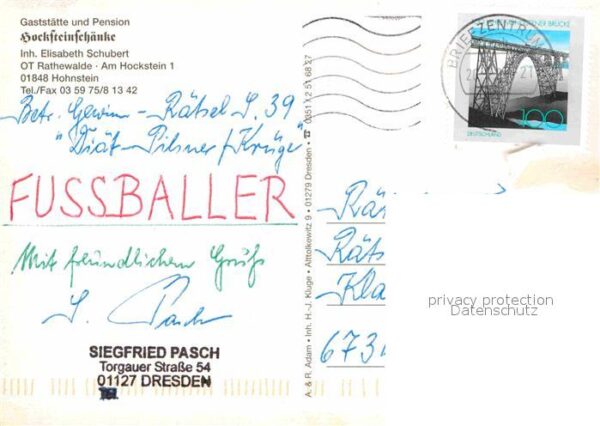 Gaststätte und Pension
Hocksteinschänke
Inh. Elisabeth Schubert
OT Rathewalde · Am Hockstein 1
01848 Hohnstein
Tel./Fax 03 59 75/8 13 42
Betr. Gewinn-Rätsel S. 39
"Diät-Pilsner/Krüge"
FUSSBALLER
Mit freundlichem Gruß
S. Pasch
SIEGFRIED PASCH
Torgauer Straße 54
01127 DRESDEN
A. & R. Adam • Inh. H.-J. Kluge • Alttolkewitz 9 • 01279 Dresden • ☎ 0351/2 51 68 27
BRIEFZENTRUM
BRÜCKE
100
DEUTSCHLAND
Rä
Räts
Kla
673
privacy protection
Datenschutz